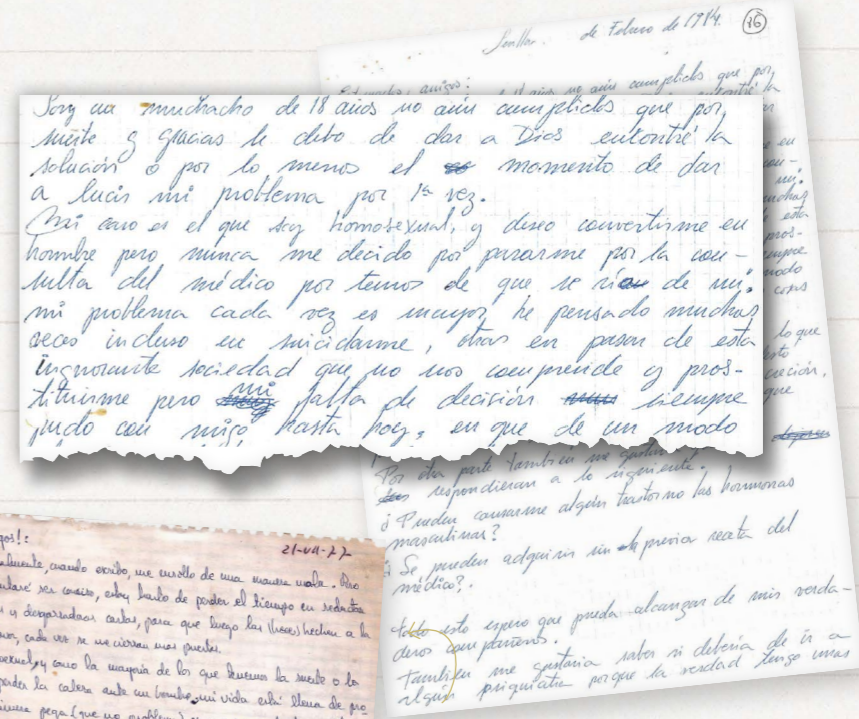 de Febrero de
16
Soy un muchacho de 18 años no aún cumplidos que por
suerte y gracias le debo de dar a Dios encontré la
solución o por lo menos el momento de dar
a lucir mi problema por 1ª vez.
Mi caso es el que soy homosexual, y deseo convertirme en
hombre pero nunca me decido por pasarme por la con-
sulta del médico por temor de que se rian de mi.
mi problema cada vez es mayor, he pensado muchas
veces incluso en suicidarme, otras en pasar de esta
ingnorante sociedad que no nos comprende y pros-
tituirme pero mi falta de decisión siempre
pudo con migo, hasta hoy, en que de un modo
lo que
creción,
que
Por otra parte también me gustaria
respondieran a lo siguiente.
¿Pueden causarme algún trastorno las hormonas
masculinas?
¿Se pueden adquirir sin la previa receta del
médico?.
todo esto espero que pueda alcanzar de mis verda-
deros compañeros.
También me gustaria saber si deberia de ir a
algún psiquiatra porque la verdad tengo unas
21-VII-77
gos!:
almente, cuando escribo, me enrollo de una manera mala. Pero
ser conciso, estoy harto de perder el tiempo en redactar
y desgarradoras cartas, para que luego las hechen a la
cada vez se me cierran mas puertas.
y como la mayoria de los que tenemos la suerte o la
perder la cabeza ante un hombre, mi vida está llena de pro-
pega (que no problema)